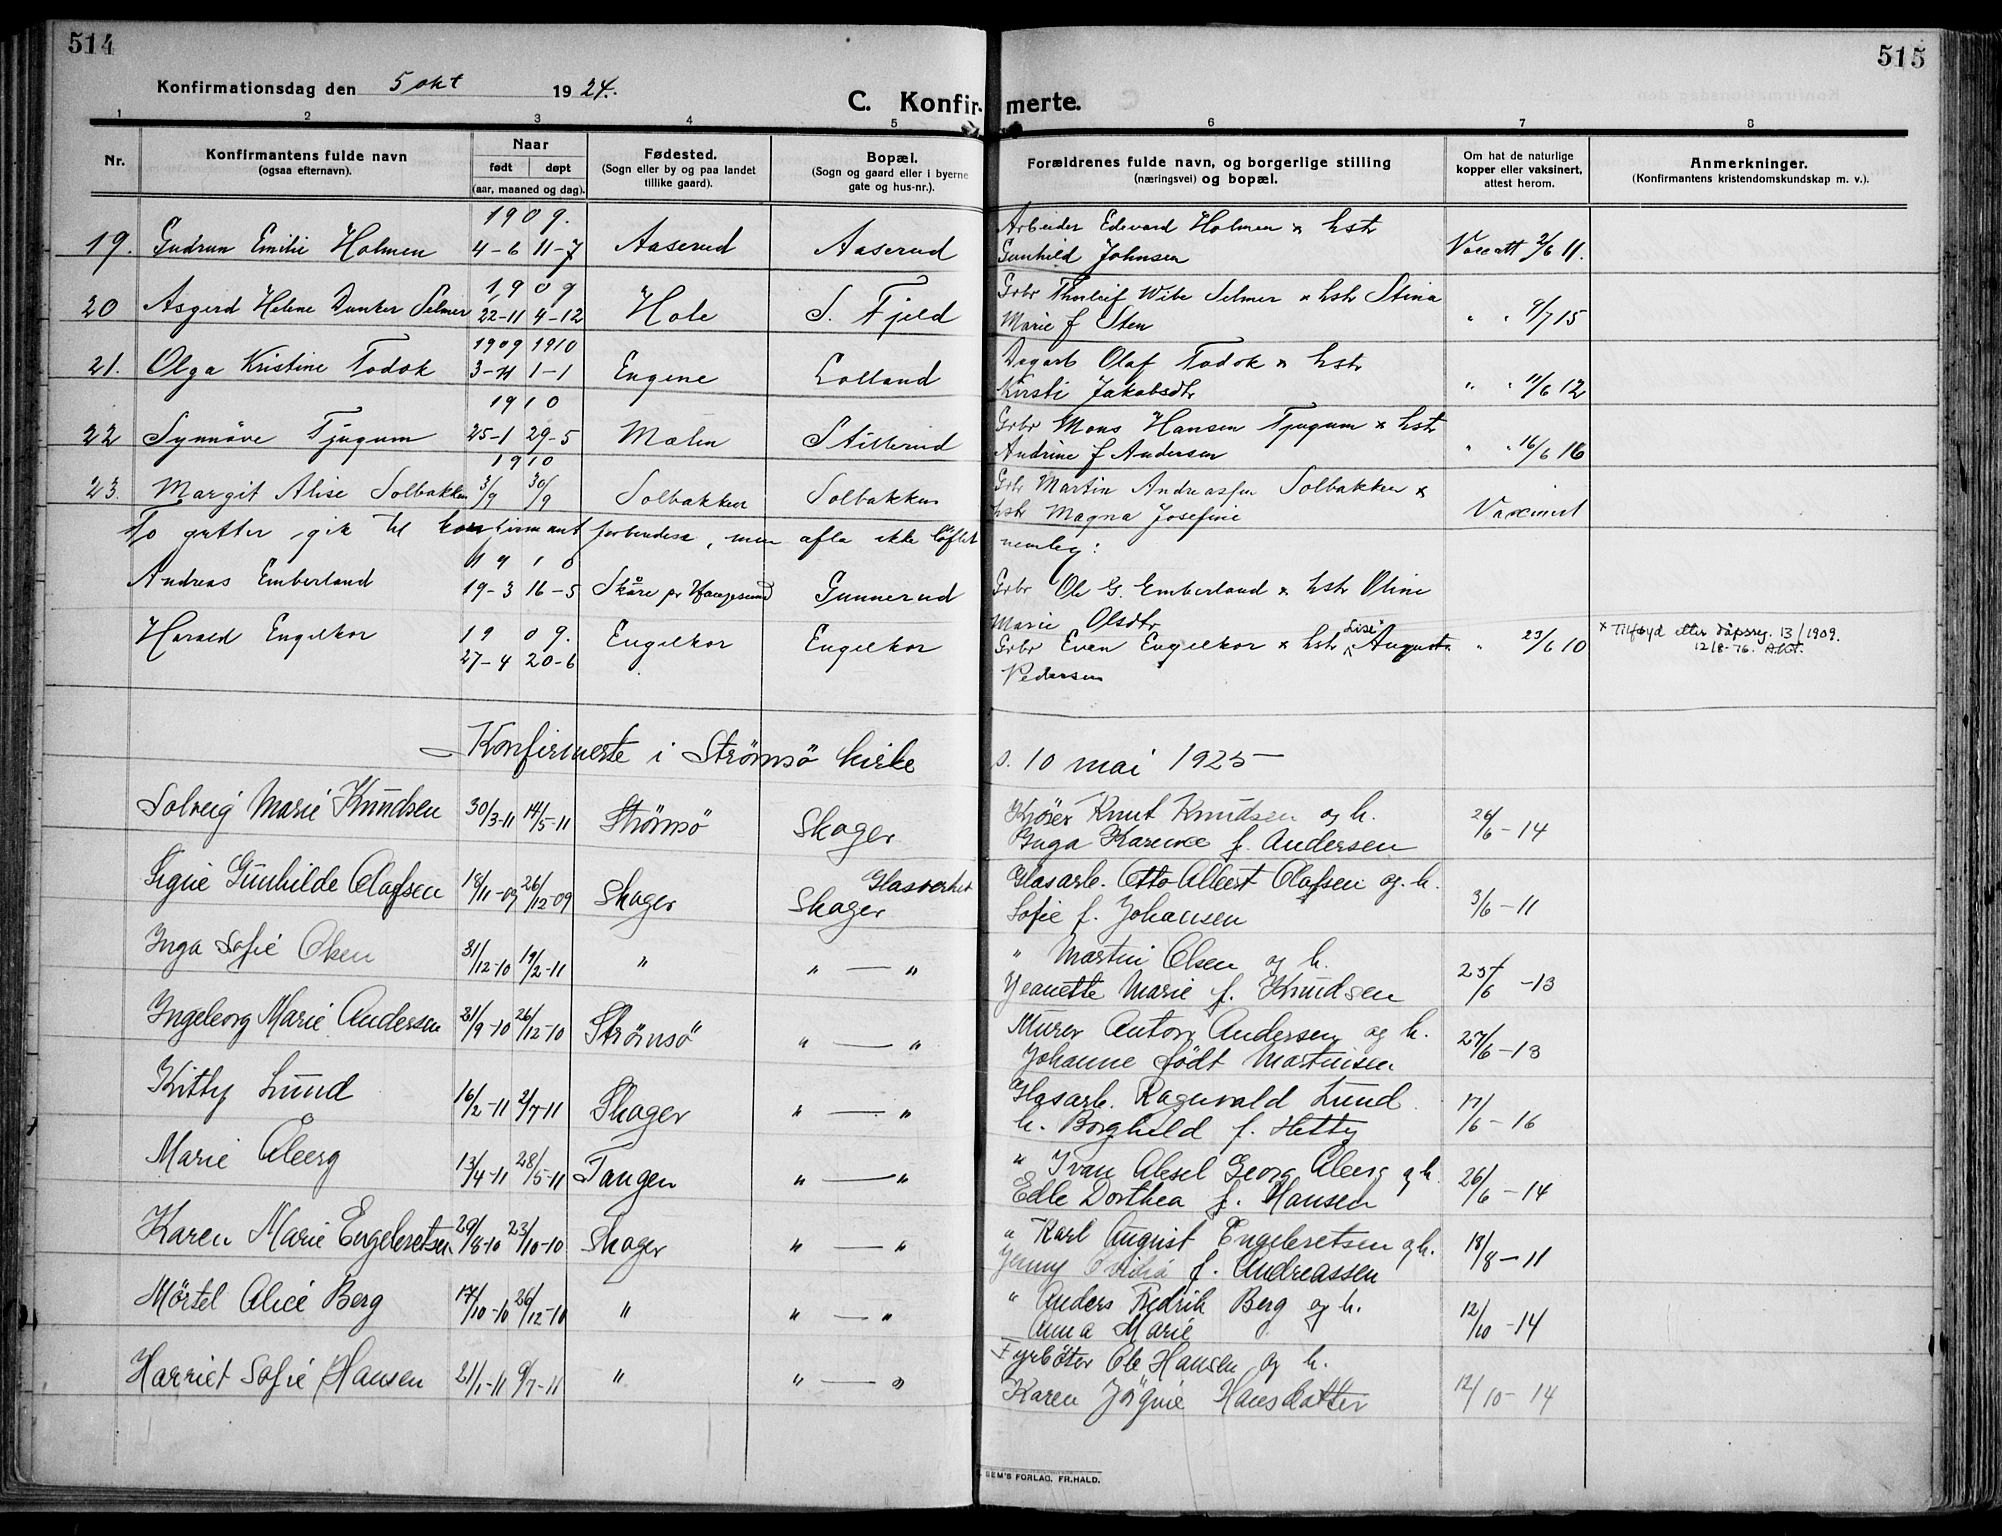 514
515
Konfirmationsdag den 5 okt 1924.
C. Konfirmerte.
1 2 3 4 5 6 7 8
Nr. Konfirmantens fulde navn (ogsaa efternavn). Naar født døpt (aar, maaned og dag). Fødested. (Sogn eller by og paa landet tillike gaard). Bopæl. (Sogn og gaard eller i byerne gate og hus-nr.). Forældrenes fulde navn, og borgerlige stilling (næringsvei) og bopæl. Om hat de naturlige kopper eller vaksinert, attest herom. Anmerkninger. (Konfirmantens kristendomskundskap m. v.).
1909. Arbeider Edevard Holmen x hstr
19. Gudrun Emilie Holmen 4-6 11-7 Aaserud Aaserud Gunhild Johnsen Vaccatt 2/6 11.
1909 Grbr Thorleif Wibe Selmer x hstr Stina
20 Asgerd Helene Dunker Selmer 22-11 4-12 Hole S. Fjeld Marie f Sten " " 9/7 15
1909 1910 Dagarb Olaf Todok x hstr
21. Olga Kristine Todok 3-11 1-1 Eugene Lolland Kirsti Jakobsdtr " " 11/6 12
1910 Grbr Mons Hansen Tjugum x hstr
22 Synnöve Tjugum 25-1 29-5 Mælen Stillerud Andrine f Andersen " " 16/6 16
1910 Grbr Martin Andreassen Solbakken x
23. Margit Alise Solbakken 3/9 30/9 Solbakken Solbakken hstr Magna Josefine Vaxinert
To gutter gik til konfirmant forberedese, men afla ikke löftet nemlig:
1910
Andreas Emberland 19-3 16-5 Skåre pr Haugesund Gunnerud Grbr Ole G. Emberland x hstr Oline
Marie Olsdtr
Harald Engelkor 1909. Engelkor Engelkor Grbr Evan Engelkor x hstr "Lise" Augusta " 23/6 10 x Tilføyd etter dåpsreg. 13/1909.
27-4 20-6 Pedersen 12/8-76.
Konfirmerte i Strømsö kirke s. 10 mai 1925
Solveig Marie Knudsen 30/3-11 14/5-11 Strömsö Skoger Kjörer Knut Knudsen og h. 26/6-14
Inga Karine f. Andersen
Signe Gunhilde Olafsen 18/11-09 26/12-09 Skoger Glasverket Skoger Glasarb. Otto Albert Olafsen og h. 3/6-11
Sofie f. Johansen
Inga Sofie Olsen 31/12-10 19/2-11 " " — " " Martin Olsen og h. 25/6-13
Jeanette Marie f. Knudsen
Ingeborg Marie Andersen 21/9-10 26/12-10 Strømsö " — " Murer Anton Andersen og h. 27/6-13
Johanne født Martinsen.
Kitty Lund 16/2-11 2/7-11 Skoger " — " Glasarb. Ragnvald Lund 17/6-16
h. Borghild f. Hetty
Marie Åberg 13/4-11 28/5-11 Tangen " — " " Ivan Aksel Georg Åberg og h. 26/6-14
Edle Dorthea f. Hansen
Karen Marie Engebretsen 29/8-10 23/10-10 Skoger " — " " Karl August Engebretsen og h. 18/8-11
Jenny Ovidia f. Andreassen
Mørtel Alice Berg 17/10-10 26/12-10 " " — " " Anders Fredrik Berg og h. 12/10-14
Anna Marie
Harriet Sofie Hansen 21/1-11 9/7-11 " " — " Fyrböter Ole Hansen og h. 12/10-14
Karen Jögine Hansdatter
SEM'S FORLAG, FR.HALD.